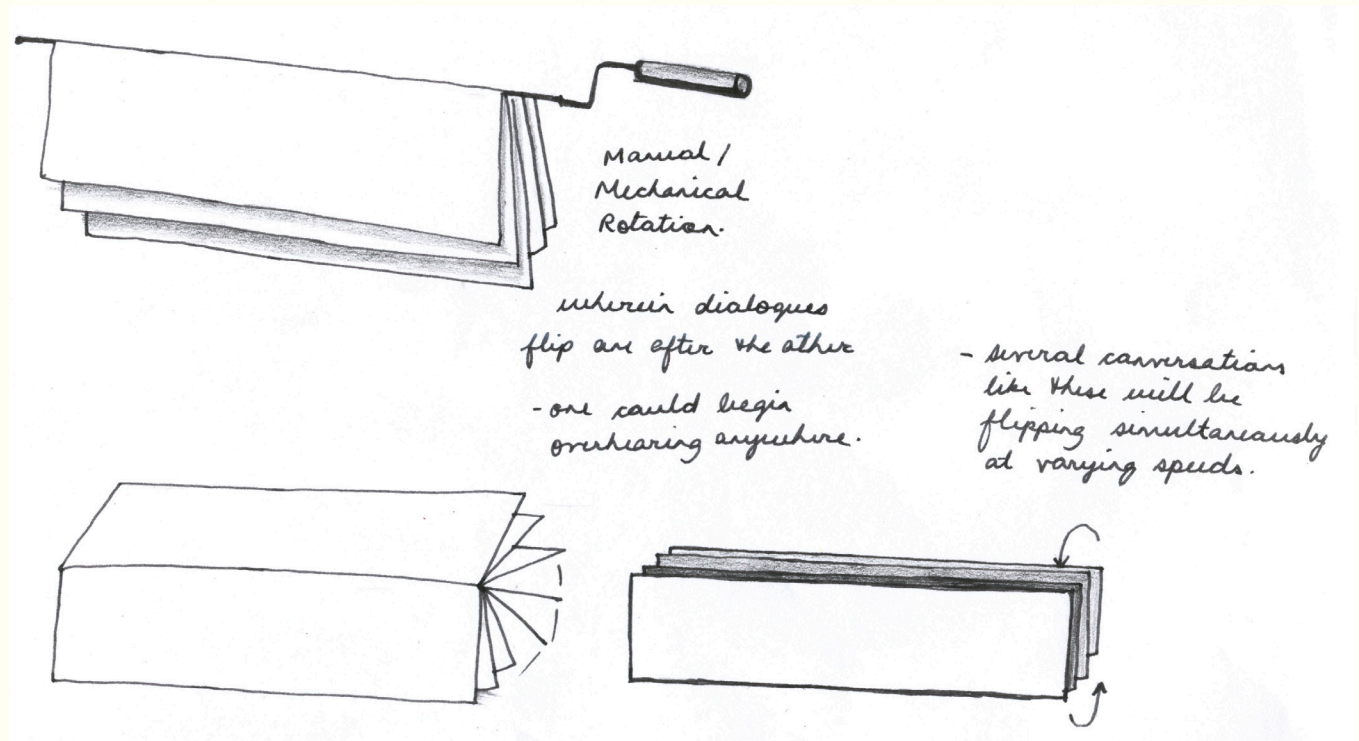 Manual /
Mechanical
Rotation.
wherein dialogues
flip one after the other
- one could begin
overhearing anywhere.
- several conversations
like these will be
flipping simultaneously
at varying speeds.